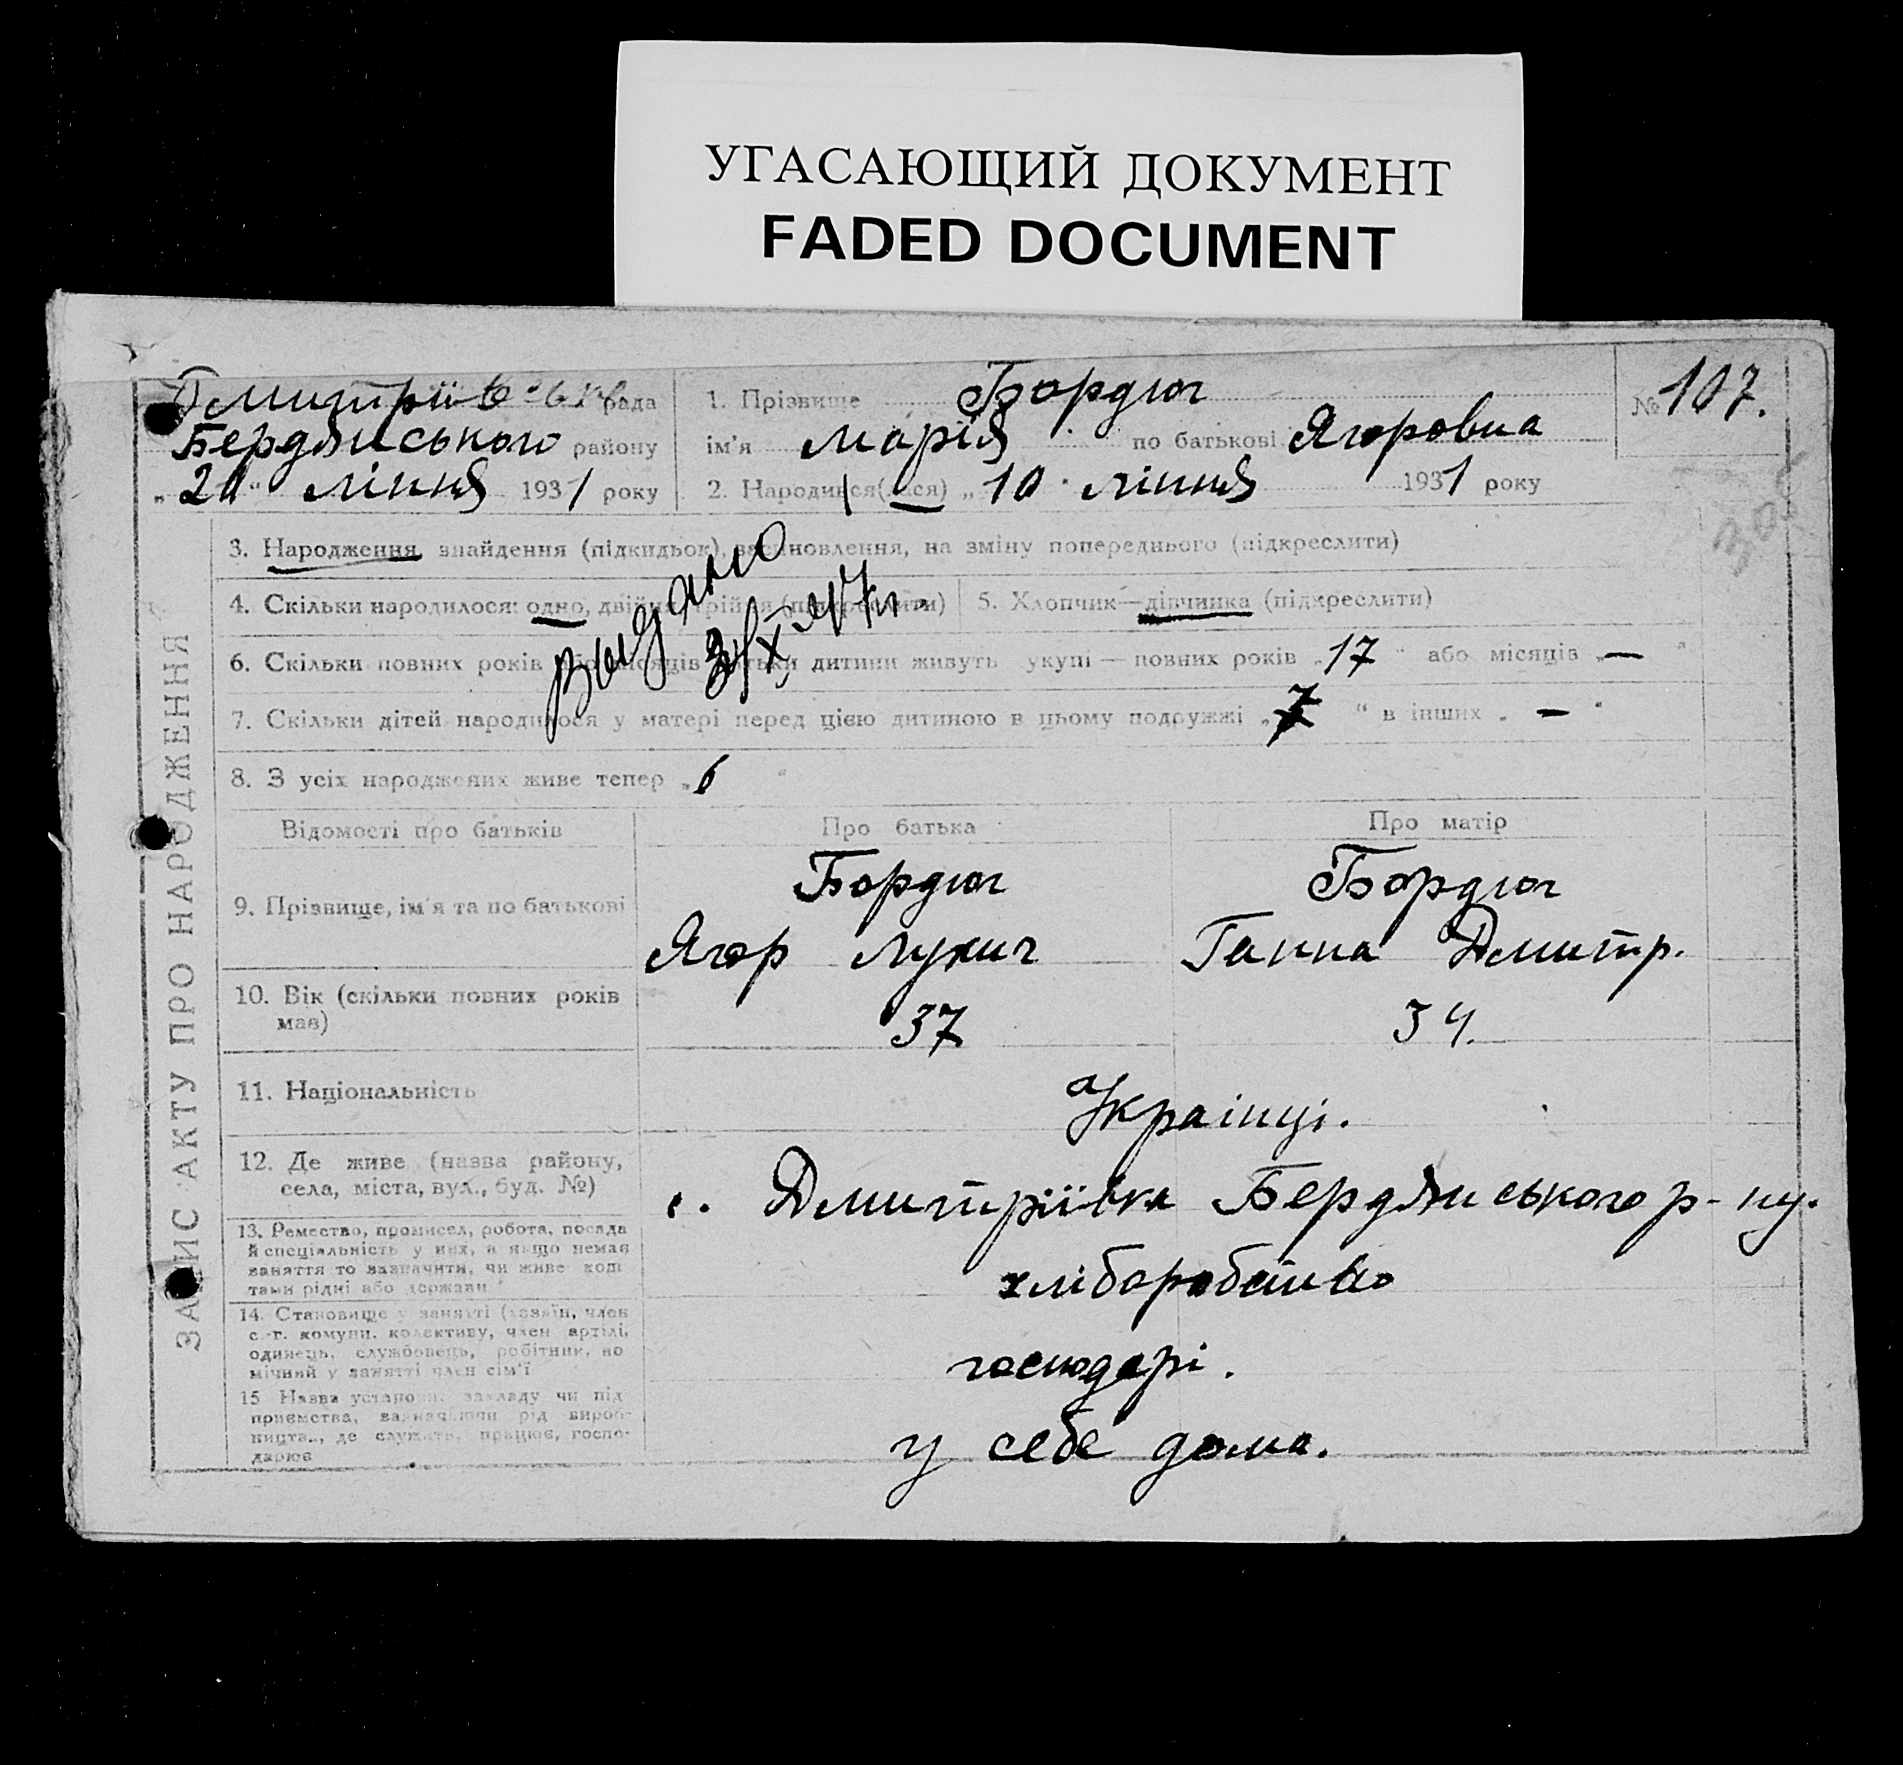 УГАСАЮЩИЙ ДОКУМЕНТ
FADED DOCUMENT
Дмитріївська рада
Бердянського району
„20“ липня 1931 року
1. Прізвище Бордюг
ім'я Марія по батькові Ягоровна
2. Народився(лася) „10 липня 1931 року
№ 107.
3. Народження, знайдення (підкидьок), встановлення, на зміну попереднього (підкреслити)
4. Скільки народилося: одно, двійня, трійня (підкреслити)
5. Хлопчик—дівчинка (підкреслити)
Видано
6. Скільки повних років або місяців батьки дитини живуть укупі — повних років „17“ або місяців „—“
7. Скільки дітей народилося у матері перед цією дитиною в цьому подружжі „7“ в інших „—“
8. З усіх народжених живе тепер „6“
ЗАПИС АКТУ ПРО НАРОДЖЕННЯ
Відомості про батьків
Про батька
Про матір
9. Прізвище, ім'я та по батькові
Бордюг
Ягор Лукич
Бордюг
Ганна Дмитр.
10. Вік (скільки повних років
має)
37
34.
11. Національність
Українці.
12. Де живе (назва району,
села, міста, вул., буд. №)
с. Дмитріївка Бердянського р-ну.
13. Ремество, промисел, робота, посада
й спеціяльність у них, а якщо немає
заняття то зазначити, чи живе кош
тами рідні або держави
хліборобство
14. Становище у занятті (хазяїн, член
с.-г. комуни, колективу, член артілі,
одинець, службовець, робітник, по
мічний у занятті член сім'ї
господарі.
15 Назва установи, закладу чи під
приємства, зазначаючи рід вироб-
ництва, де служить, працює, госпо-
дарює
у себе дома.